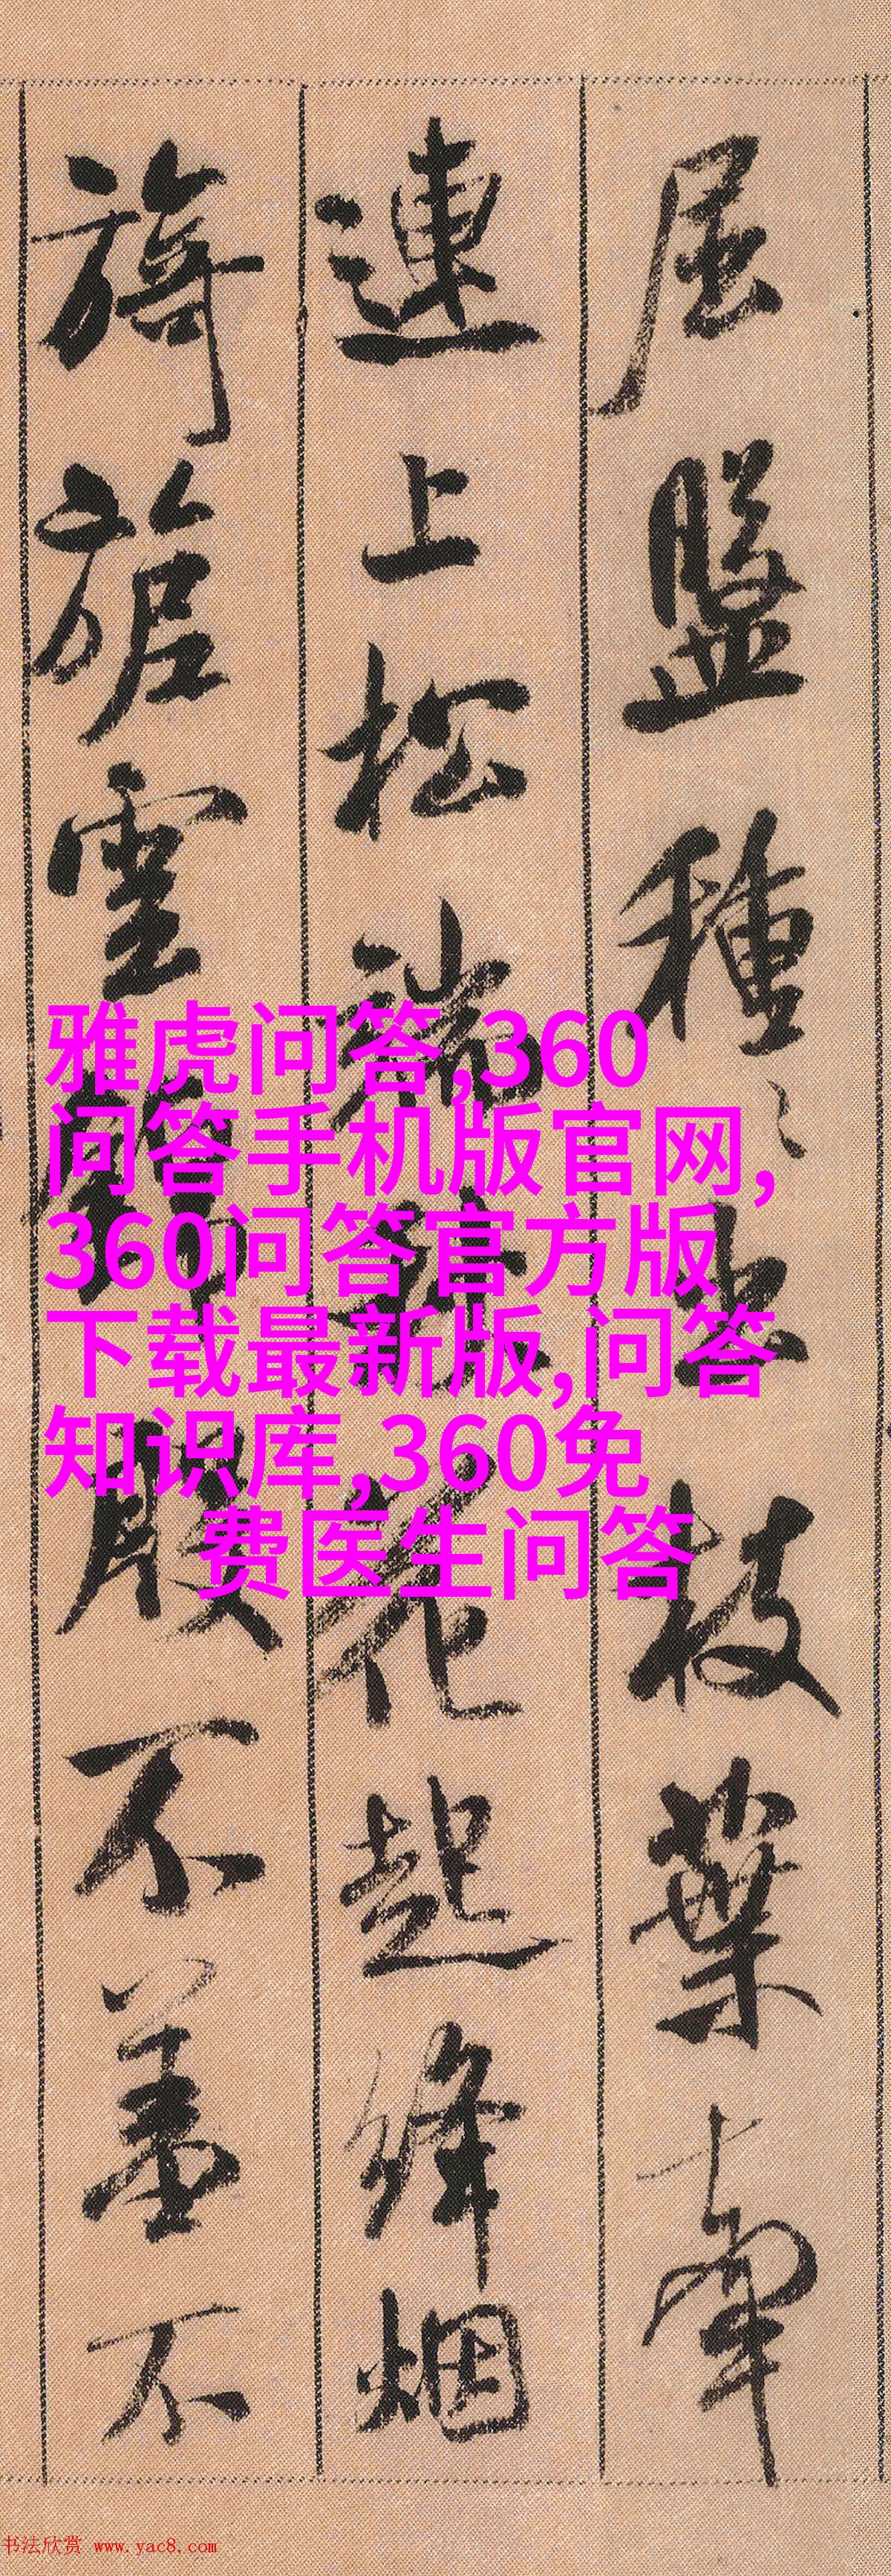 屈盤種〻出枝葉牽
連上松端秋花起絳烟
旖旎雲錦殷不羞不
雅虎问答,360
问答手机版官网,
360问答官方版
下载最新版,问答
知识库,360免
费医生问答
书法欣赏 www.yac8.com